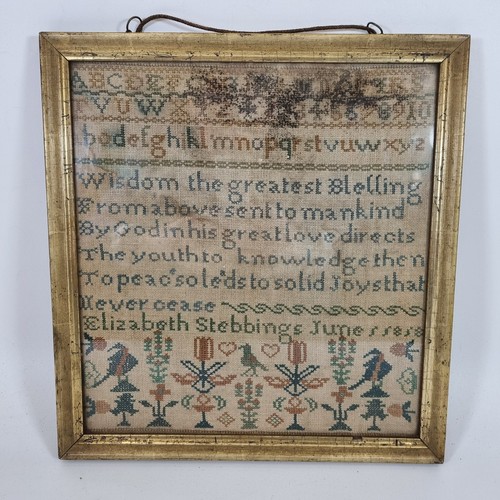 ABCDE
VUWX 12 45678910
bcdefghiklmnopqrstvuwxyz
Wisdom the greatest Blessing
From above sent to mankind
By God in his great love directs
The youth to knowledge then
To peace so leads to solid Joys that
Never cease
Elizabeth Stebbings June